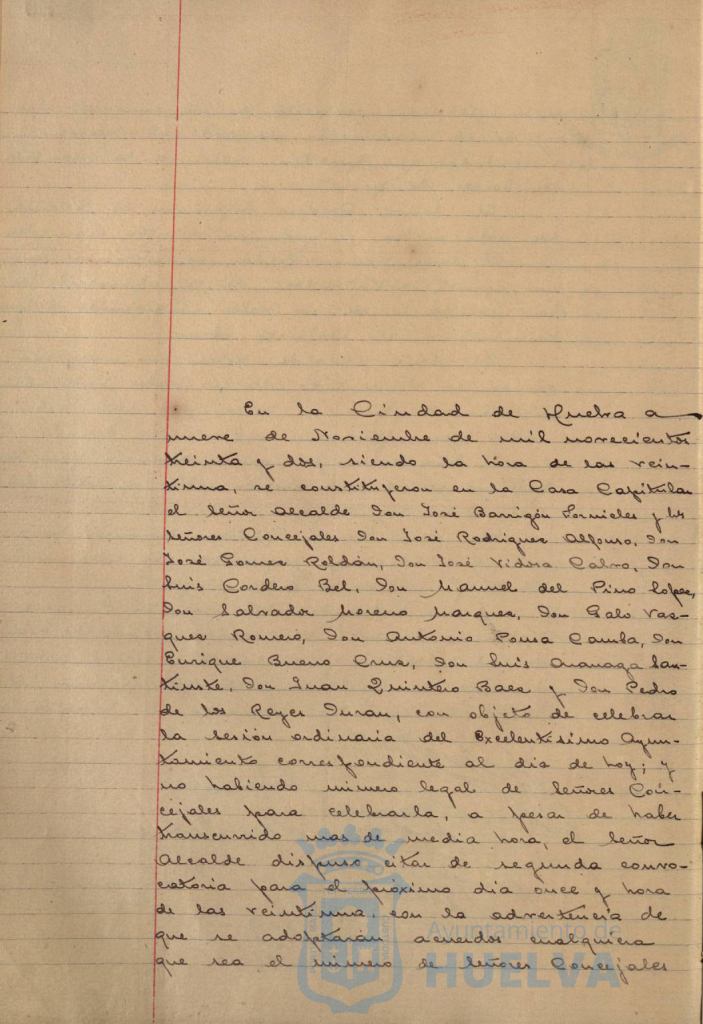 En la Ciudad de Huelva a
nueve de Noviembre de mil novecientos
treinta y dos, siendo la hora de las vein-
tiuna, se constituyeron en la Casa Capitular
el Señor Alcalde Don José Barrigón Fornieles y los
Señores Concejales Don José Rodriguez Alfonso, Don
José Gomez Roldán, Don José Vidosa Calvo, Don
Luis Cordero Bel, Don Manuel del Pino Lopez,
Don Salvador Moreno Marquez, Don Galo Vaz-
quez Romero, Don Antonio Pousa Camba, Don
Enrique Bueno Cruz, Don Luis Ananaga San-
Don Juan Quintero Baez y Don Pedro
de los Reyes Duran, con objeto de celebrar
la sesión ordinaria del Excelentisimo Ayun-
tamiento correspondiente al dia de hoy; y
no habiendo número legal de Señores Con-
cejales para celebrarla, a pesar de haber
transcurrido mas de media hora, el Señor
Alcalde dispuso citar de segunda convo-
catoria para el próximo dia once y hora
de las veintiuna, con la advertencia de
que se adoptarán acuerdos cualquiera
que sea el número de Señores Concejales
Ayuntamiento de
HUELVA